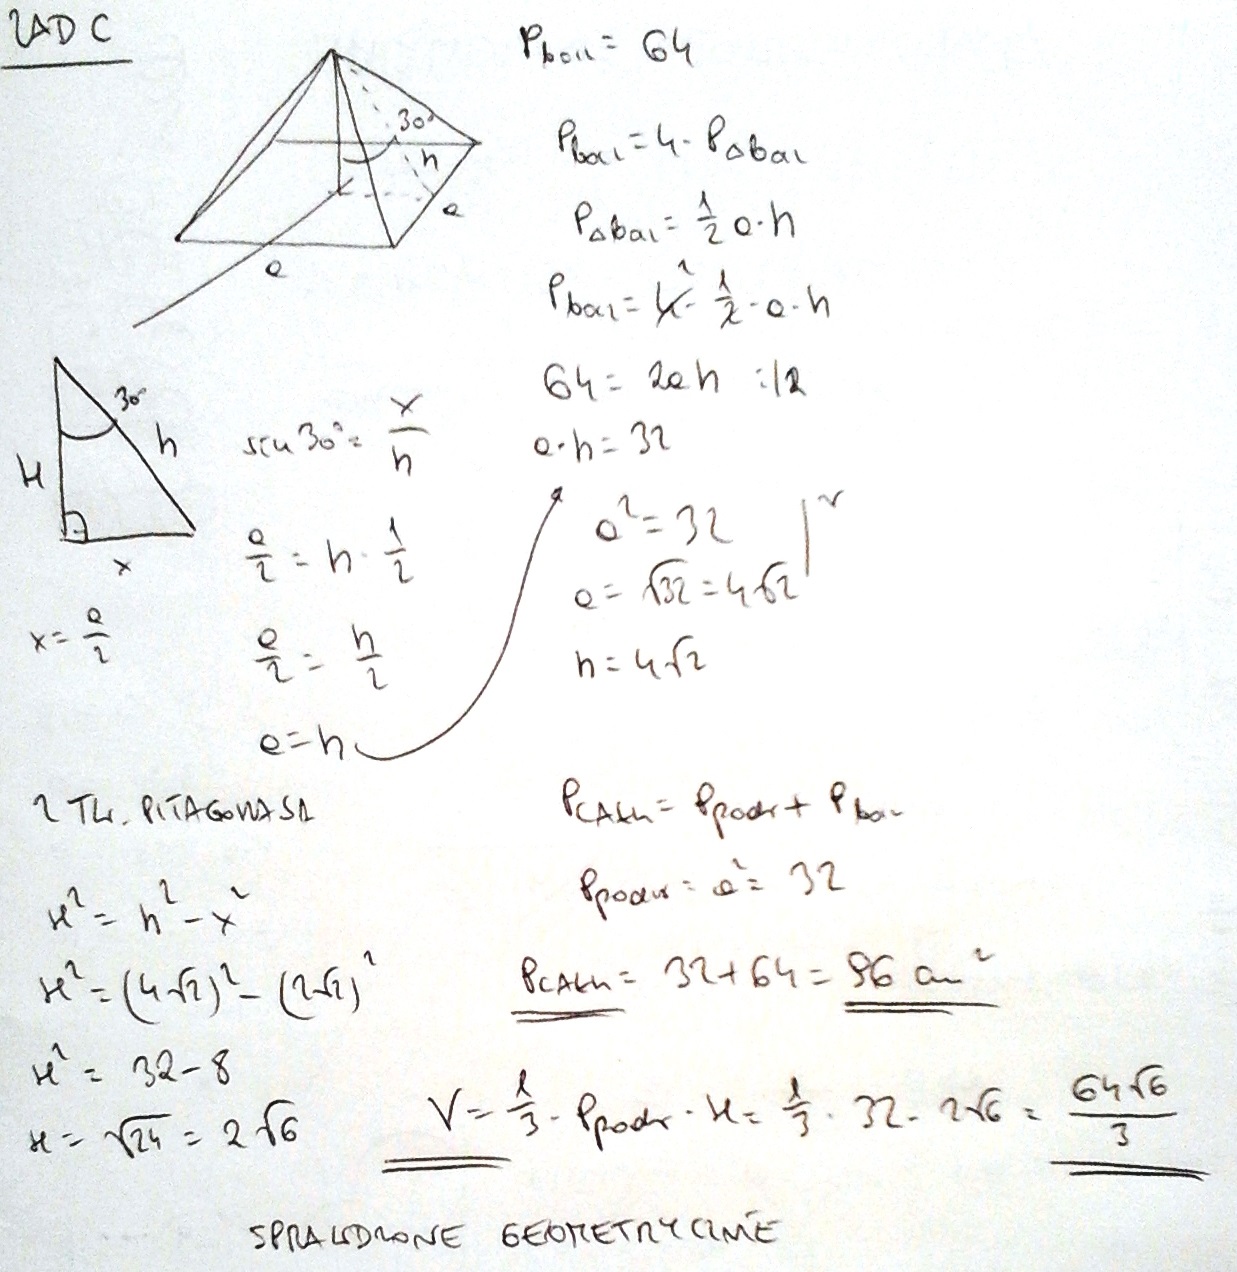 ZAD C
30°
h
a
a
P_boczn = 64
P_bocz = 4 · P_Δbocz
P_Δbocz = 1/2 a·h
P_bocz = 4² · 1/2 · a · h
64 = 2ah :/2
a·h = 32
a² = 32 | √
a = √32 = 4√2
h = 4√2
30°
H
h
x
x = a/2
sin 30° = x/h
a/2 = h · 1/2
a/2 = h/2
a = h
Z TW. PITAGORASA
H² = h² - x²
H² = (4√2)² - (2√2)²
H² = 32 - 8
H = √24 = 2√6
P_CAŁK = P_podst + P_bocz
P_podst = a² = 32
P_CAŁK = 32 + 64 = 96 cm²
V = 1/3 · P_podst · H = 1/3 · 32 · 2√6 = 64√6/3
SPRAWDZONE GEOMETRYCZNIE